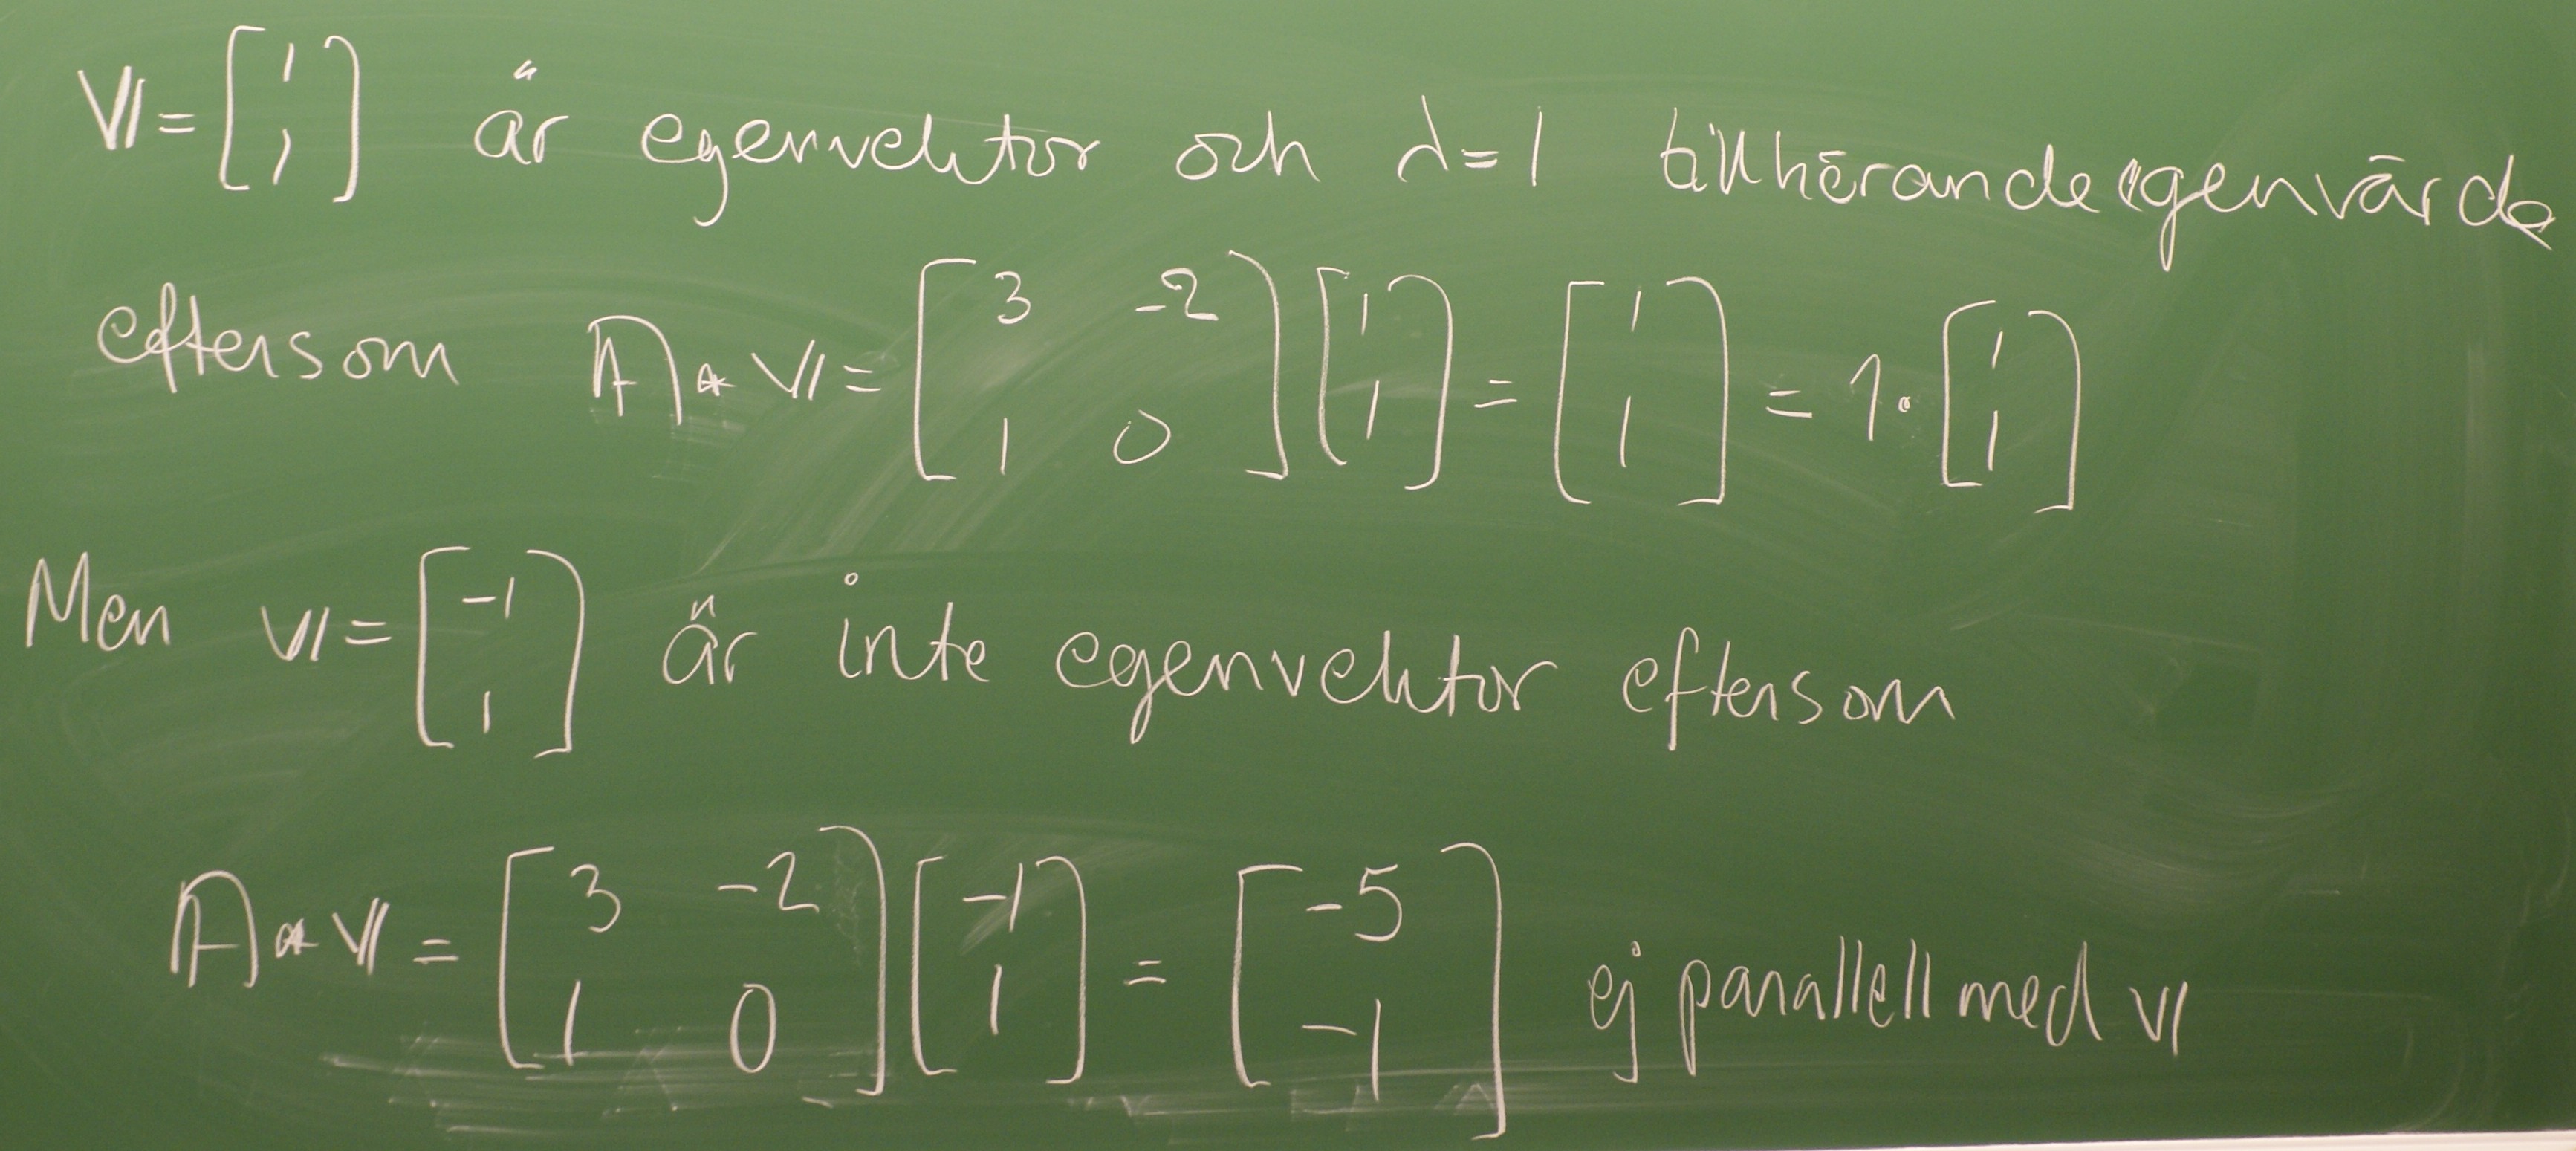 V = [1 1] är egenvektor och λ=1 tillhörande egenvärde
eftersom A * V = [3 -2 1 0] [1 1] = [1 1] = 1 · [1 1]
Men V = [-1 1] är inte egenvektor eftersom
A * V = [3 -2 1 0] [-1 1] = [-5 -1] ej parallell med V